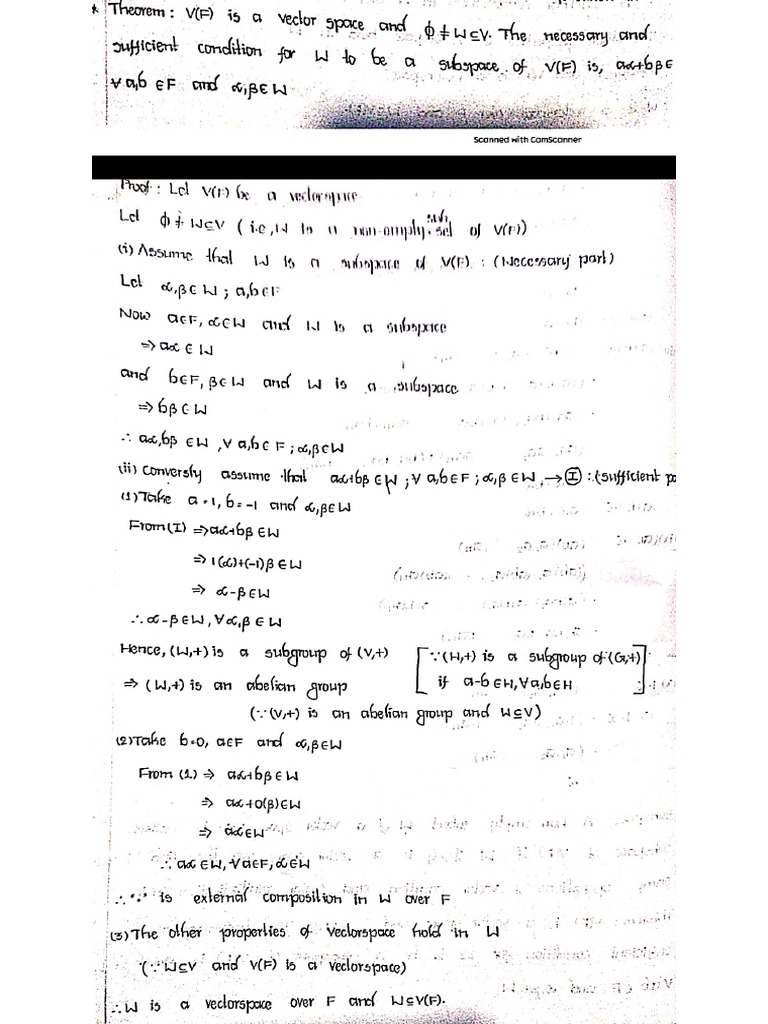 * Theorem : V(F) is a vector space and ϕ ≠ W⊆V. The necessary and
sufficient condition for W to be a subspace of V(F) is, aα+bβ∈
∀ a,b ∈F and α,β∈W
Scanned with CamScanner
Proof : Let V(F) be a vectorspace
Let ϕ ≠ W⊆V ( i.e, W is a non-empty subset of V(F))
(i) Assume that W is a subspace of V(F) : (Necessary part)
Let α,β∈W ; a,b∈F
Now a∈F, α∈W and W is a subspace
⇒ aα ∈ W
and b∈F, β∈W and W is a subspace
⇒ bβ∈W
∴ aα,bβ ∈W ,∀ a,b∈F ; α,β∈W
(ii) Conversly assume that aα+bβ∈W ; ∀ a,b∈F ; α,β∈W → Ⓘ : (sufficient pa
(1) Take a=1, b=-1 and α,β∈W
From (I) ⇒ aα+bβ∈W
⇒ 1(α)+(-1)β∈W
⇒ α-β∈W
∴ α-β∈W, ∀α,β∈W
Hence, (W,+) is a subgroup of (V,+) [∵ (H,+) is a subgroup of (G,+)
⇒ (W,+) is an abelian group if a-b∈H, ∀a,b∈H]
(∵ (V,+) is an abelian group and W⊆V)
(2) Take b=0, a∈F and α,β∈W
From (1) ⇒ aα+bβ∈W
⇒ aα+0(β)∈W
⇒ aα∈W
∴ aα∈W, ∀a∈F, α∈W
∴ '·' is external composition in W over F
(3) The other properties of vectorspace hold in W
(∵ W⊆V and V(F) is a vectorspace)
∴ W is a vectorspace over F and W⊆V(F).